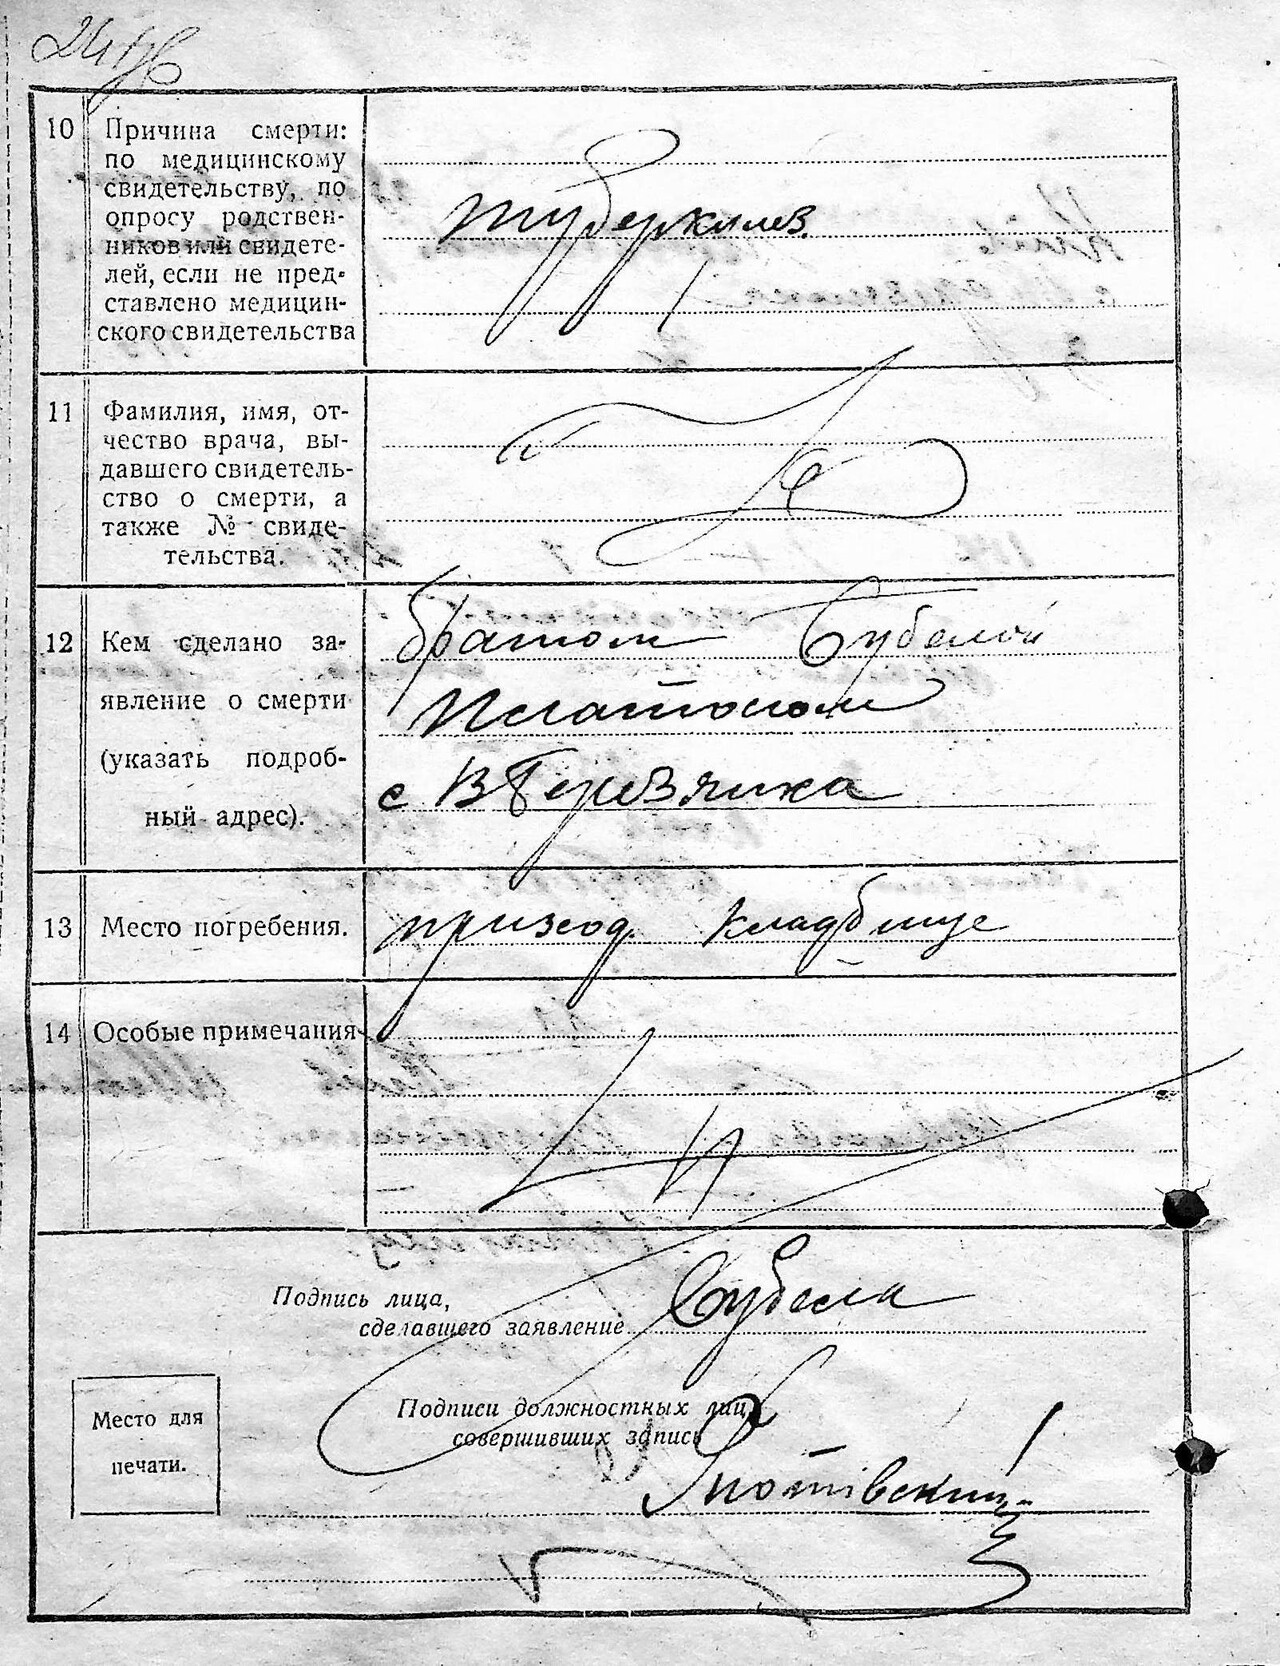 10
Причина смерти:
по медицинскому
свидетельству, по
опросу родствен-
ников или свидете-
лей, если не пред-
ставлено медицин-
ского свидетельства
туберкулез
11
Фамилия, имя, от-
чество врача, вы-
давшего свидетель-
ство о смерти, а
также № свиде-
тельства.
12
Кем сделано за-
явление о смерти
(указать подроб-
ный адрес).
братом
Платоном
с
13
Место погребения.
приход. кладбище
14
Особые примечания
Подпись лица,
сделавшего заявление
Подписи должностных лиц,
совершивших запись
Место для
печати.